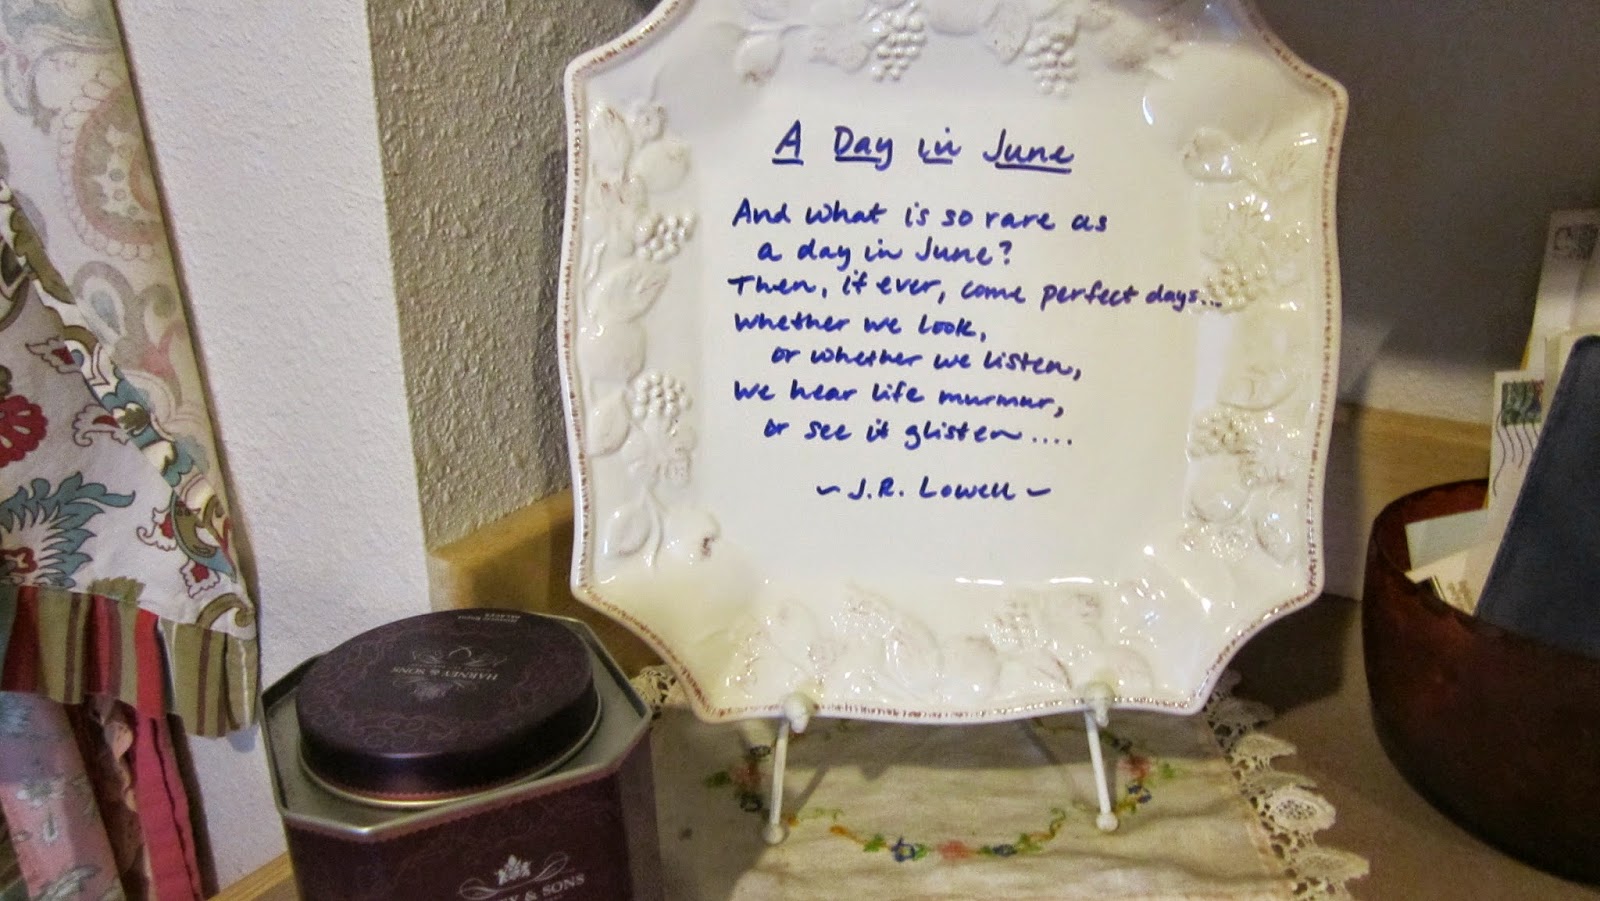 A Day in June
And what is so rare as
a day in June?
Then, if ever, come perfect days...
Whether we look,
or whether we listen,
We hear life murmur,
or see it glisten....
~ J.R. Lowell ~
HARNEY & SONS
& SONS